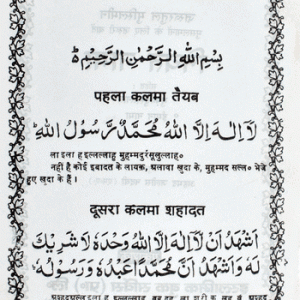 بِسْمِ اللهِ الرَّحْمٰنِ الرَّحِيْمِ
पहला कलमा तैयब
لَا اِلٰهَ اِلَّا اللهُ مُحَمَّدٌ رَّسُوْلُ اللهِ
ला इला ह इल्लल्लाहु मुहम्मदुर्रसूलुल्लाह०
नहीं है कोई इबादत के लायक, अलावा खुदा के, मुहम्मद सल्ल० भेजे
हुए खुदा के हैं ।
दूसरा कलमा शहादत
اَشْهَدُ اَنْ لَّا اِلٰهَ اِلَّا اللهُ وَحْدَهٗ لَا شَرِيْكَ
لَهٗ وَاَشْهَدُ اَنَّ مُحَمَّدًا عَبْدُهٗ وَرَسُوْلُهٗ